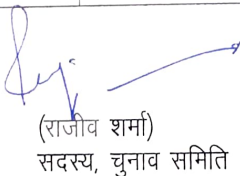 (राजीव शर्मा)
सदस्य, चुनाव समिति